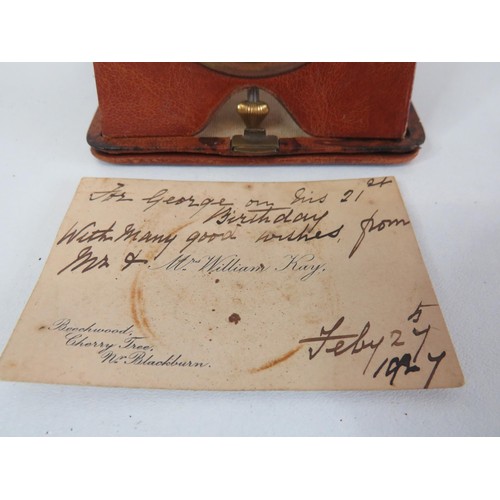 For George on his 21st
Birthday
With Many good wishes, from
Mr & Mr William Kay.
Beechwood,
Cherry Tree,
Nr Blackburn.
Feby 25
1927